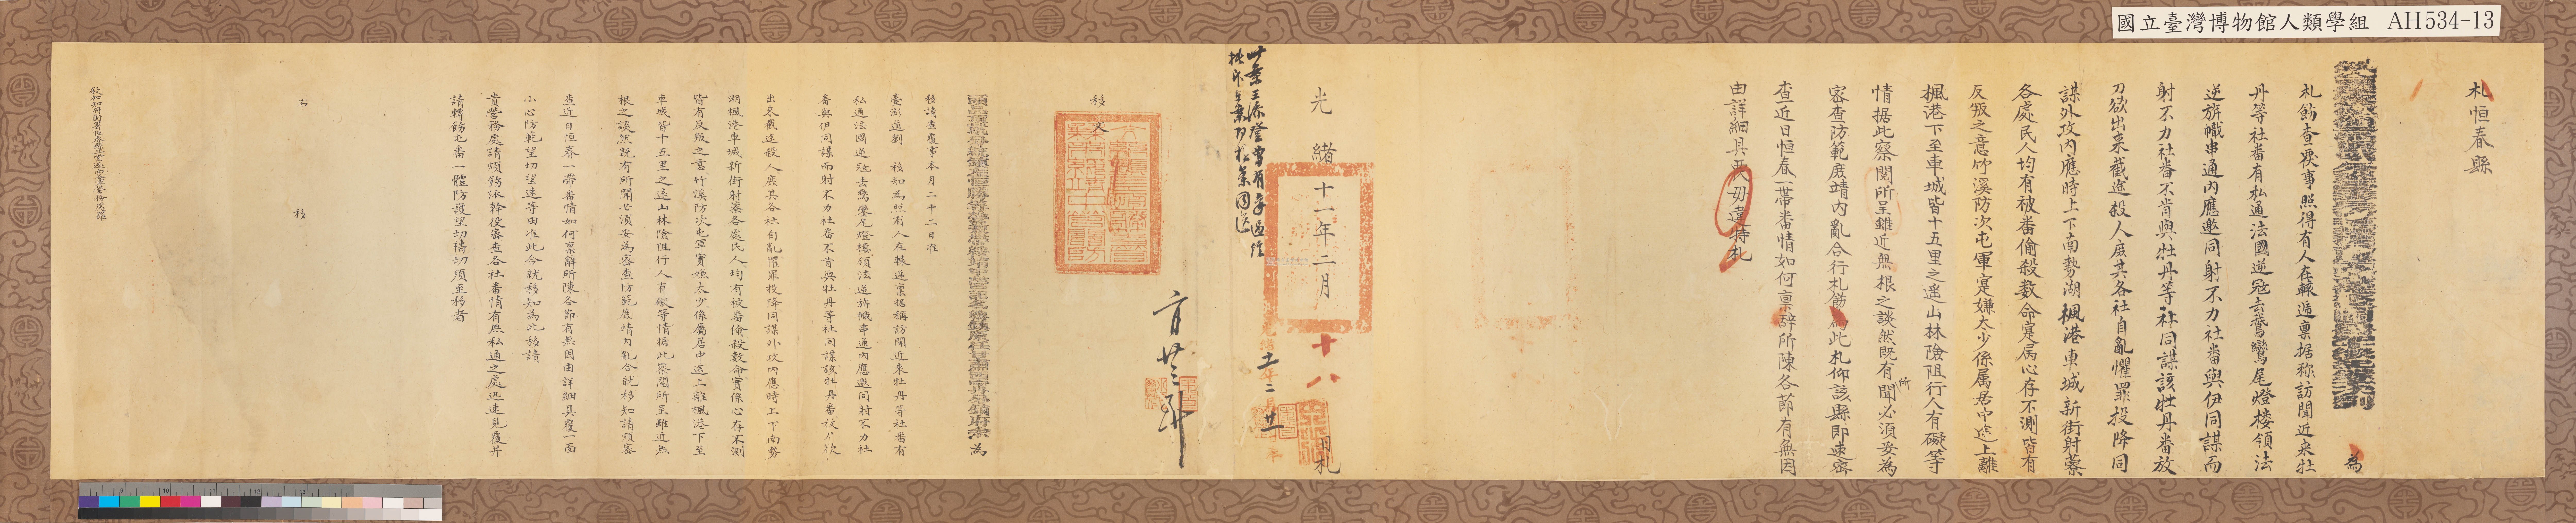 國立臺灣博物館人類學組 AH534-13
札恒春縣
為
札飭查覆事照得有人在轅遞禀据称訪聞近来牡
丹等社番有私通法國逆冦去鵞鸞尾燈楼領法
逆旂幟串通內應邀同射不力社番與伊同謀而
射不力社番不肯與牡丹等社同謀該牡丹番放
刀欲出来截途殺人庶其各社自亂懼罪投降同
謀外攻內應時上下南勢湖楓港車城新街射藔
各處民人均有被番偷殺数命寔属心存不測皆有
反叛之意竹溪防次屯軍寔嫌太少係属居中途上離
楓港下至車城皆十五里之遥山林險阻行人有礙等
情据此察閱所呈雖近無根之談然既有所聞必須妥為
密查防範庶靖內亂合行札飭為此札仰該縣即速密
查近日恒春一帶番情如何禀辭所陳各節有無因
由詳細具禀毋違特札
光緒十一年二月十八日札
此案王添登曾有
二月廿
移文
為
移請查覆事本月二十二日准
臺澎道劉 移知為照有人在轅遞禀据稱訪聞近来牡丹等社番有
私通法國逆冦去鵞鑾尾燈樓領法逆旂幟串通內應邀同射不力社
番與伊同謀而射不力社番不肯與牡丹等社同謀該牡丹番放刀欲
出来截途殺人庶其各社自亂懼罪投降同謀外攻內應時上下南勢
湖楓港車城新街射藔各處民人均有被番偷殺數命實係心存不測
皆有反叛之意竹溪防次屯軍實嫌太少係屬居中途上離楓港下至
車城皆十五里之遠山林險阻行人有礙等情据此察閱所呈雖近無
根之談然既有所聞必須妥為密查防範庶靖內亂合就移知請煩密
查近日恒春一帶番情如何禀辭所陳各節有無因由詳細具覆一面
小心防範望切望速等由准此合就移知為此移請
貴營務處請煩飭派幹役密查各社番情有無私通之處迅速見覆并
請轉飭屯番一體防護望切禱切須至移者
右 移
欽加知府銜署恒春縣正堂